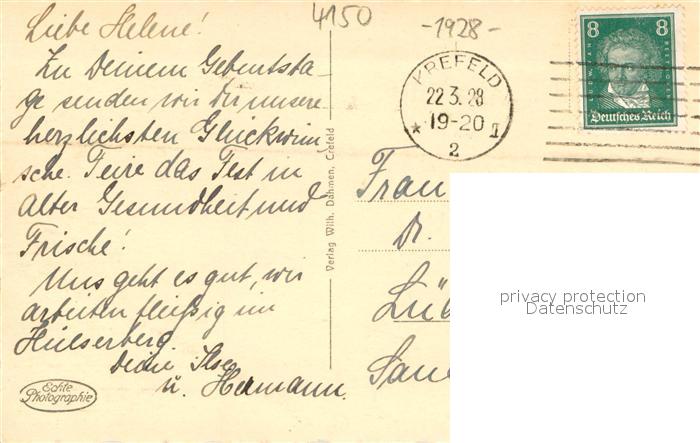 4150
-1928-
Liebe Helene!
Zu Deinem Geburtsta-
ge senden wir Dir unsere
herzlichsten Glückwün-
sche. Feire das Fest in
alter Gesundheit und
Frische!
Uns geht es gut, wir
arbeiten fleißig im
Hülserberg.
Deine Ilse
u. Hermann.
Echte
Photographie
Verlag Wilh. Dahmen, Crefeld
KREFELD
22.3.28
19-20
* 2 II
8 8
Deutsches Reich
Frau
Dr.
Lüb
San
privacy protection
Datenschutz